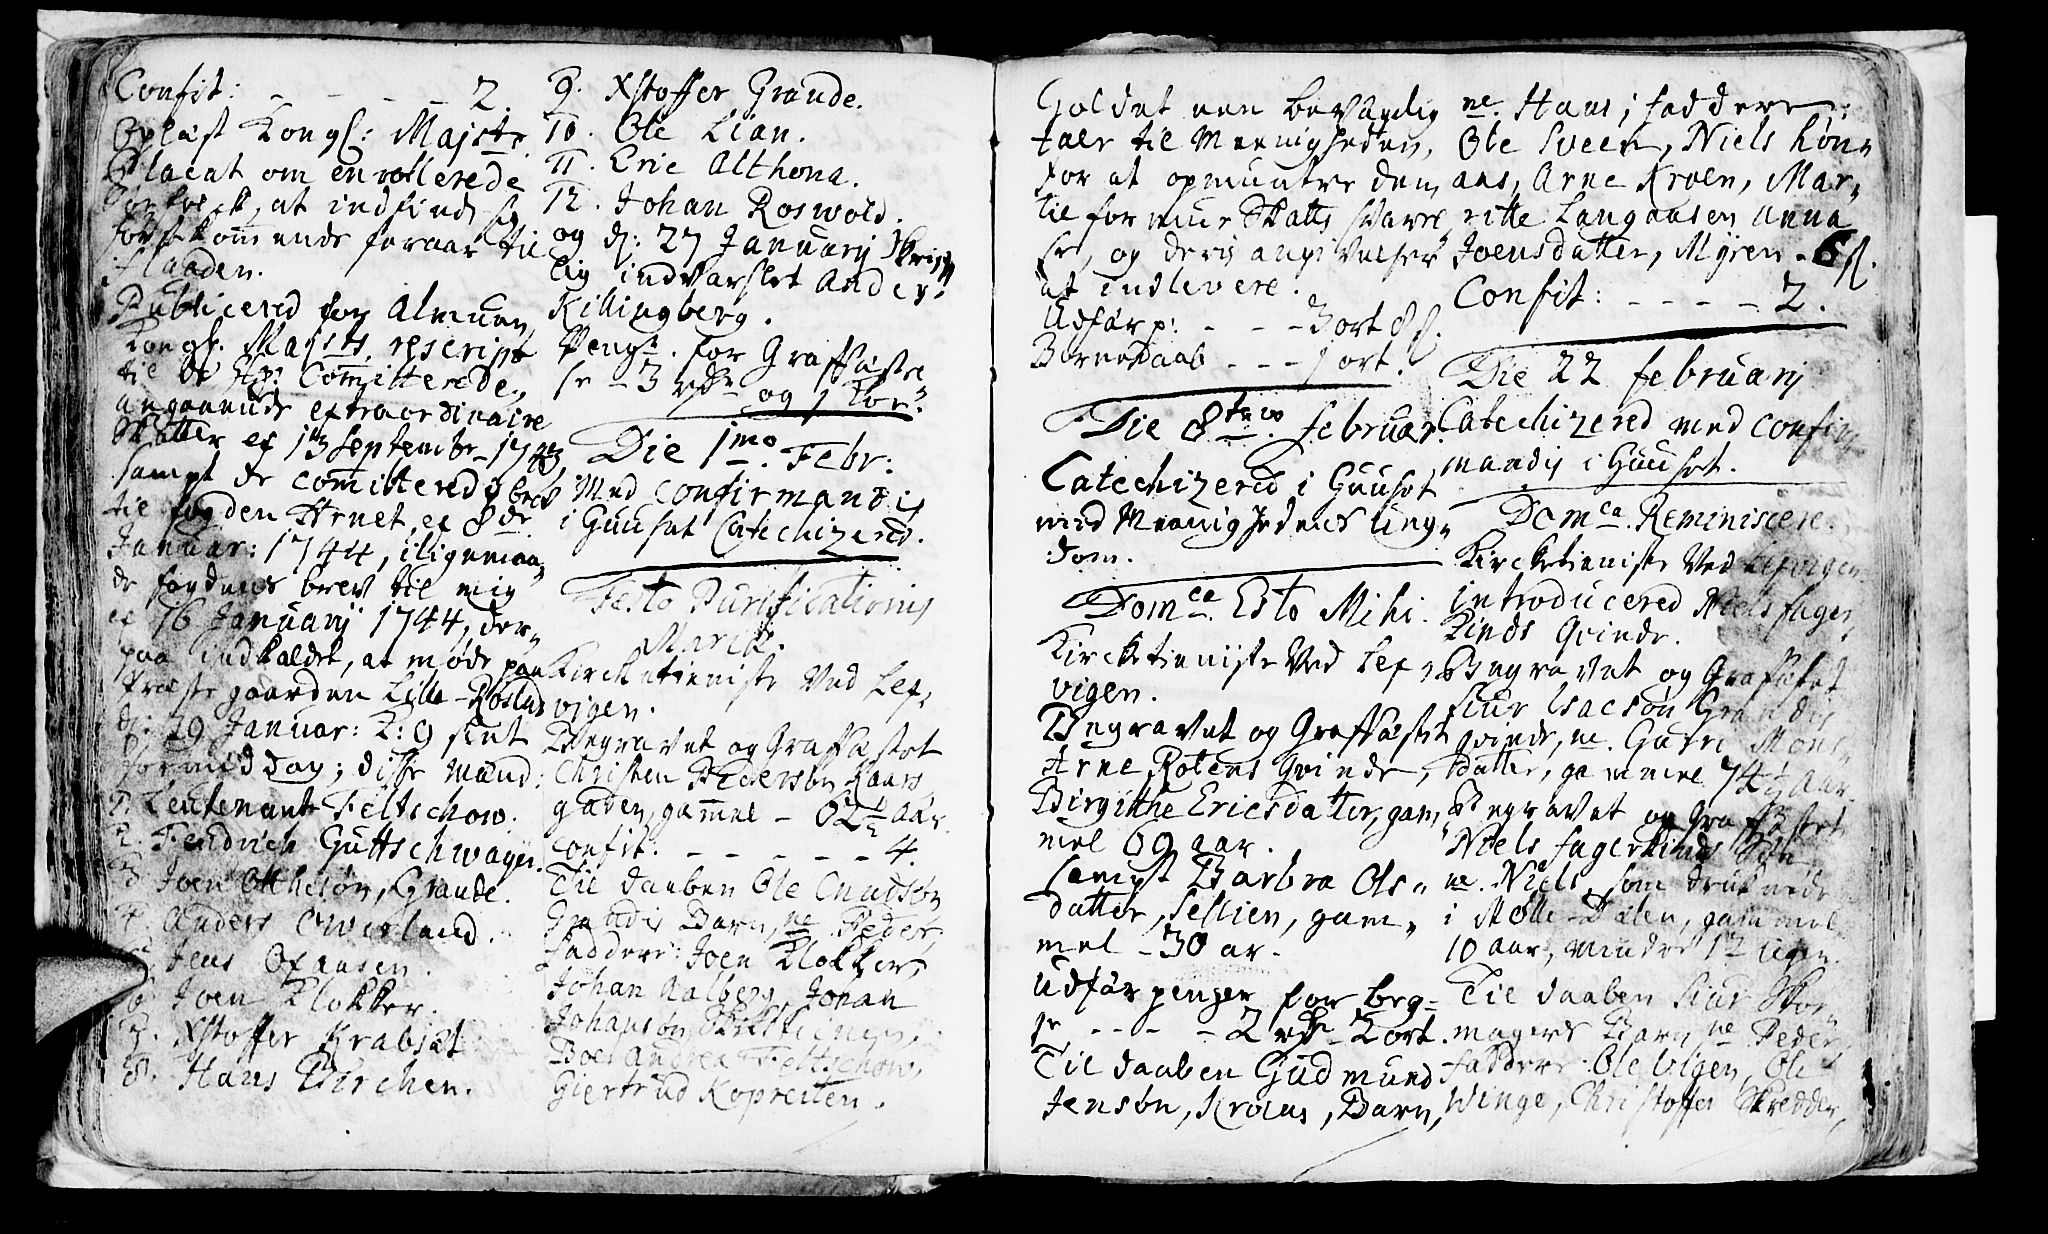 Confit: - - - - - 2.
Oplæst Kongl: Majsts
Placat om enrollerede
at indfinde sig
førstkom̄ende foraar til
flaaden.
Publicered for Almuen
Kongl. Majsts rescript
til de Com̄itterede,
angaaende extraordinaire
Skatter af 13 Septembr. 1743,
sampt de com̄itteredes brev
til fogden Hrnet af 8de
Januar: 1744, iligemaa-
de fogdens brev til mig
af 16 Januarij 1744, der-
paa indkaldet, at møde paa
Præstegaarden Lille-Roslad
d: 29 Januar: K: 9 slet
formiddag; disse mænd:
1. Leutenant Feltschow.
2. Fendrich Guttschwager.
3 Joen Otthesøn, Grande.
4. Anders Owerland.
5. Jens Oxaasen.
6. Joen Klokker.
7. Xstoffer Krabsæt
8. Hans Birchen.
9. Xstoffer Grande.
10. Ole Lian.
11. Eric Althona.
12. Johan Roswold.
og d: 27 January skrift-
lig indvarslet Anders
Killingberg.
Penge for Graffæste
se - 3 rdr og 1 Kor?
Die 1mo. Febr:
Med confirmandis
i Guuset Catechizered.
Festo Purificationis
Mariæ.
Kircketieniste ved Lex-
vigen.
Begravet og Graffæstet
Christen Pedersøn Kaars
gaden, gam̄el - 62½ aar.
confit. - - - - - - 4.
Til daaben Ole Cnudsøn
Grandis Barn, ne. Peder,
faddere: Joen Klokker,
Johan Aalberg, Johan
Johansøn,
Boel Andrea Feltschow,
Giertrud Kopreiten.
Holdet een bevægelig
tale til Meenigheden,
for at opmuntre dem
til formue Skatts svarel-
se, og deris angivelser
at indlevere.
Udfør p: - - - 3 ort 8 s.
Bornedaab - - - 1 ort.
Die 8tavo. februar.
Catechizered i Guuset
med Meenighedens ung-
dom.
Domca. Esto Mihi.
Kircketieniste ved Lex-
vigen.
Begravet og Graffæstet
Arne Rotens Qvinde,
Birgithe Ericsdatter, gam-
mel 69 aar.
sampt Barbra Ols-
datter, Sellien, gam-
mel - 30 ar.
Udfør penger for beg-
ge - - - - 2 rdr 2 ort.
Til daaben Gudmund
Jensøn, Kroens, Barn,
ne. Hans; faddere,
Ole Sveen, Niels Høn-
aas, Arne Kroen, Mar-
ritte Langaasen Anna
Joensdatter, Myren - 6 s.
Confit: - - - - 2.
Die 22 februarij
Catechizered med confir-
mandis i Guuset.
Domca. Reminiscere.
Kircketieniste ved Lexvigen
introducered Niels fager-
linds Qvinde.
Begravet og Graffæstet
Siur Isacsøn Grandis
qvinde, ne. Guru Mons-
datter, gammel 74½ aar.
Begravet og Graffæstet
Niels fagerlinds Søn
ne. Niels, som druknede
i Mølle-Dalen, gammel
10 aar, mindre 12 uger.
Til daaben Siur Skoe-
magers Barn ne Peder
faddere: Ole Vigen, Ole
Winge, Christoffer Skredder,